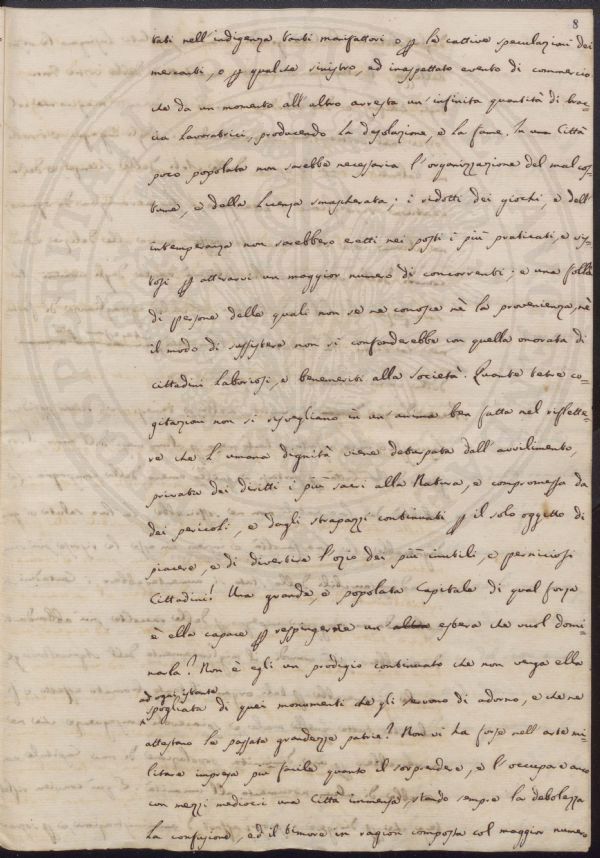 8
tati nell'indigenza tanti manifattori o p le cattive speculazioni dei
mercanti, o p qualche sinistro, ed inaspettato evento di commercio
che da un momento all'altro arresta un'infinita quantità di brac=
cia lavoratrici, producendo la desolazione, e la fame. In una Città
poco popolata non sarebbe necessaria l'organizzazione del mal cos=
tume, e della licenza smascherata; i ridotti dei giochi, e dell'
intemperanza non sarebbero eretti nei posti i più praticati, e vis=
tosi p attirarvi un maggior numero di concorrenti; e una folla
di persone delle quali non se ne conosce nè la provenienza, nè
il modo di sussistere non si confonderebbe con quella onorata di
cittadini laboriosi, e benemeriti alla società. Quante tetre co=
gitazioni non si risvegliano in un'anima ben fatta nel riflette=
re che l'umana dignità viene deturpata dall'avvilimento,
privata dei diritti i più sacri alla Natura, e compromessa da
dei pericoli, e dagli strapazzi continuati p il solo oggetto di
piacere, e di divertire l'ozio dei più inutili, e perniciosi
Cittadini! Una grande, e popolata Capitale di qual forza
è ella capace p respingere un altro estero che vuol domi=
narla? Non è egli un prodigio continuato che non venga ella
ad ogni istante
spogliata di quei monumenti che gli servono di adorno, e che ne
attestano le passate grandezze patrie? Non vi ha forse nell'arte mi=
litare impresa più facile quanto il sorprendere, e l'occupare anco
con mezzi mediocri una Città immensa, stando sempre la debolezza
la confusione, ed il timore in ragion composta col maggior numero